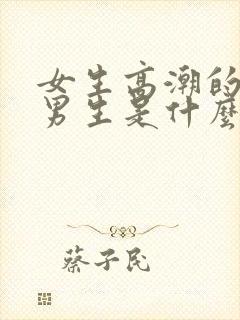 女生高潮的
男生是什麼
蔡子民